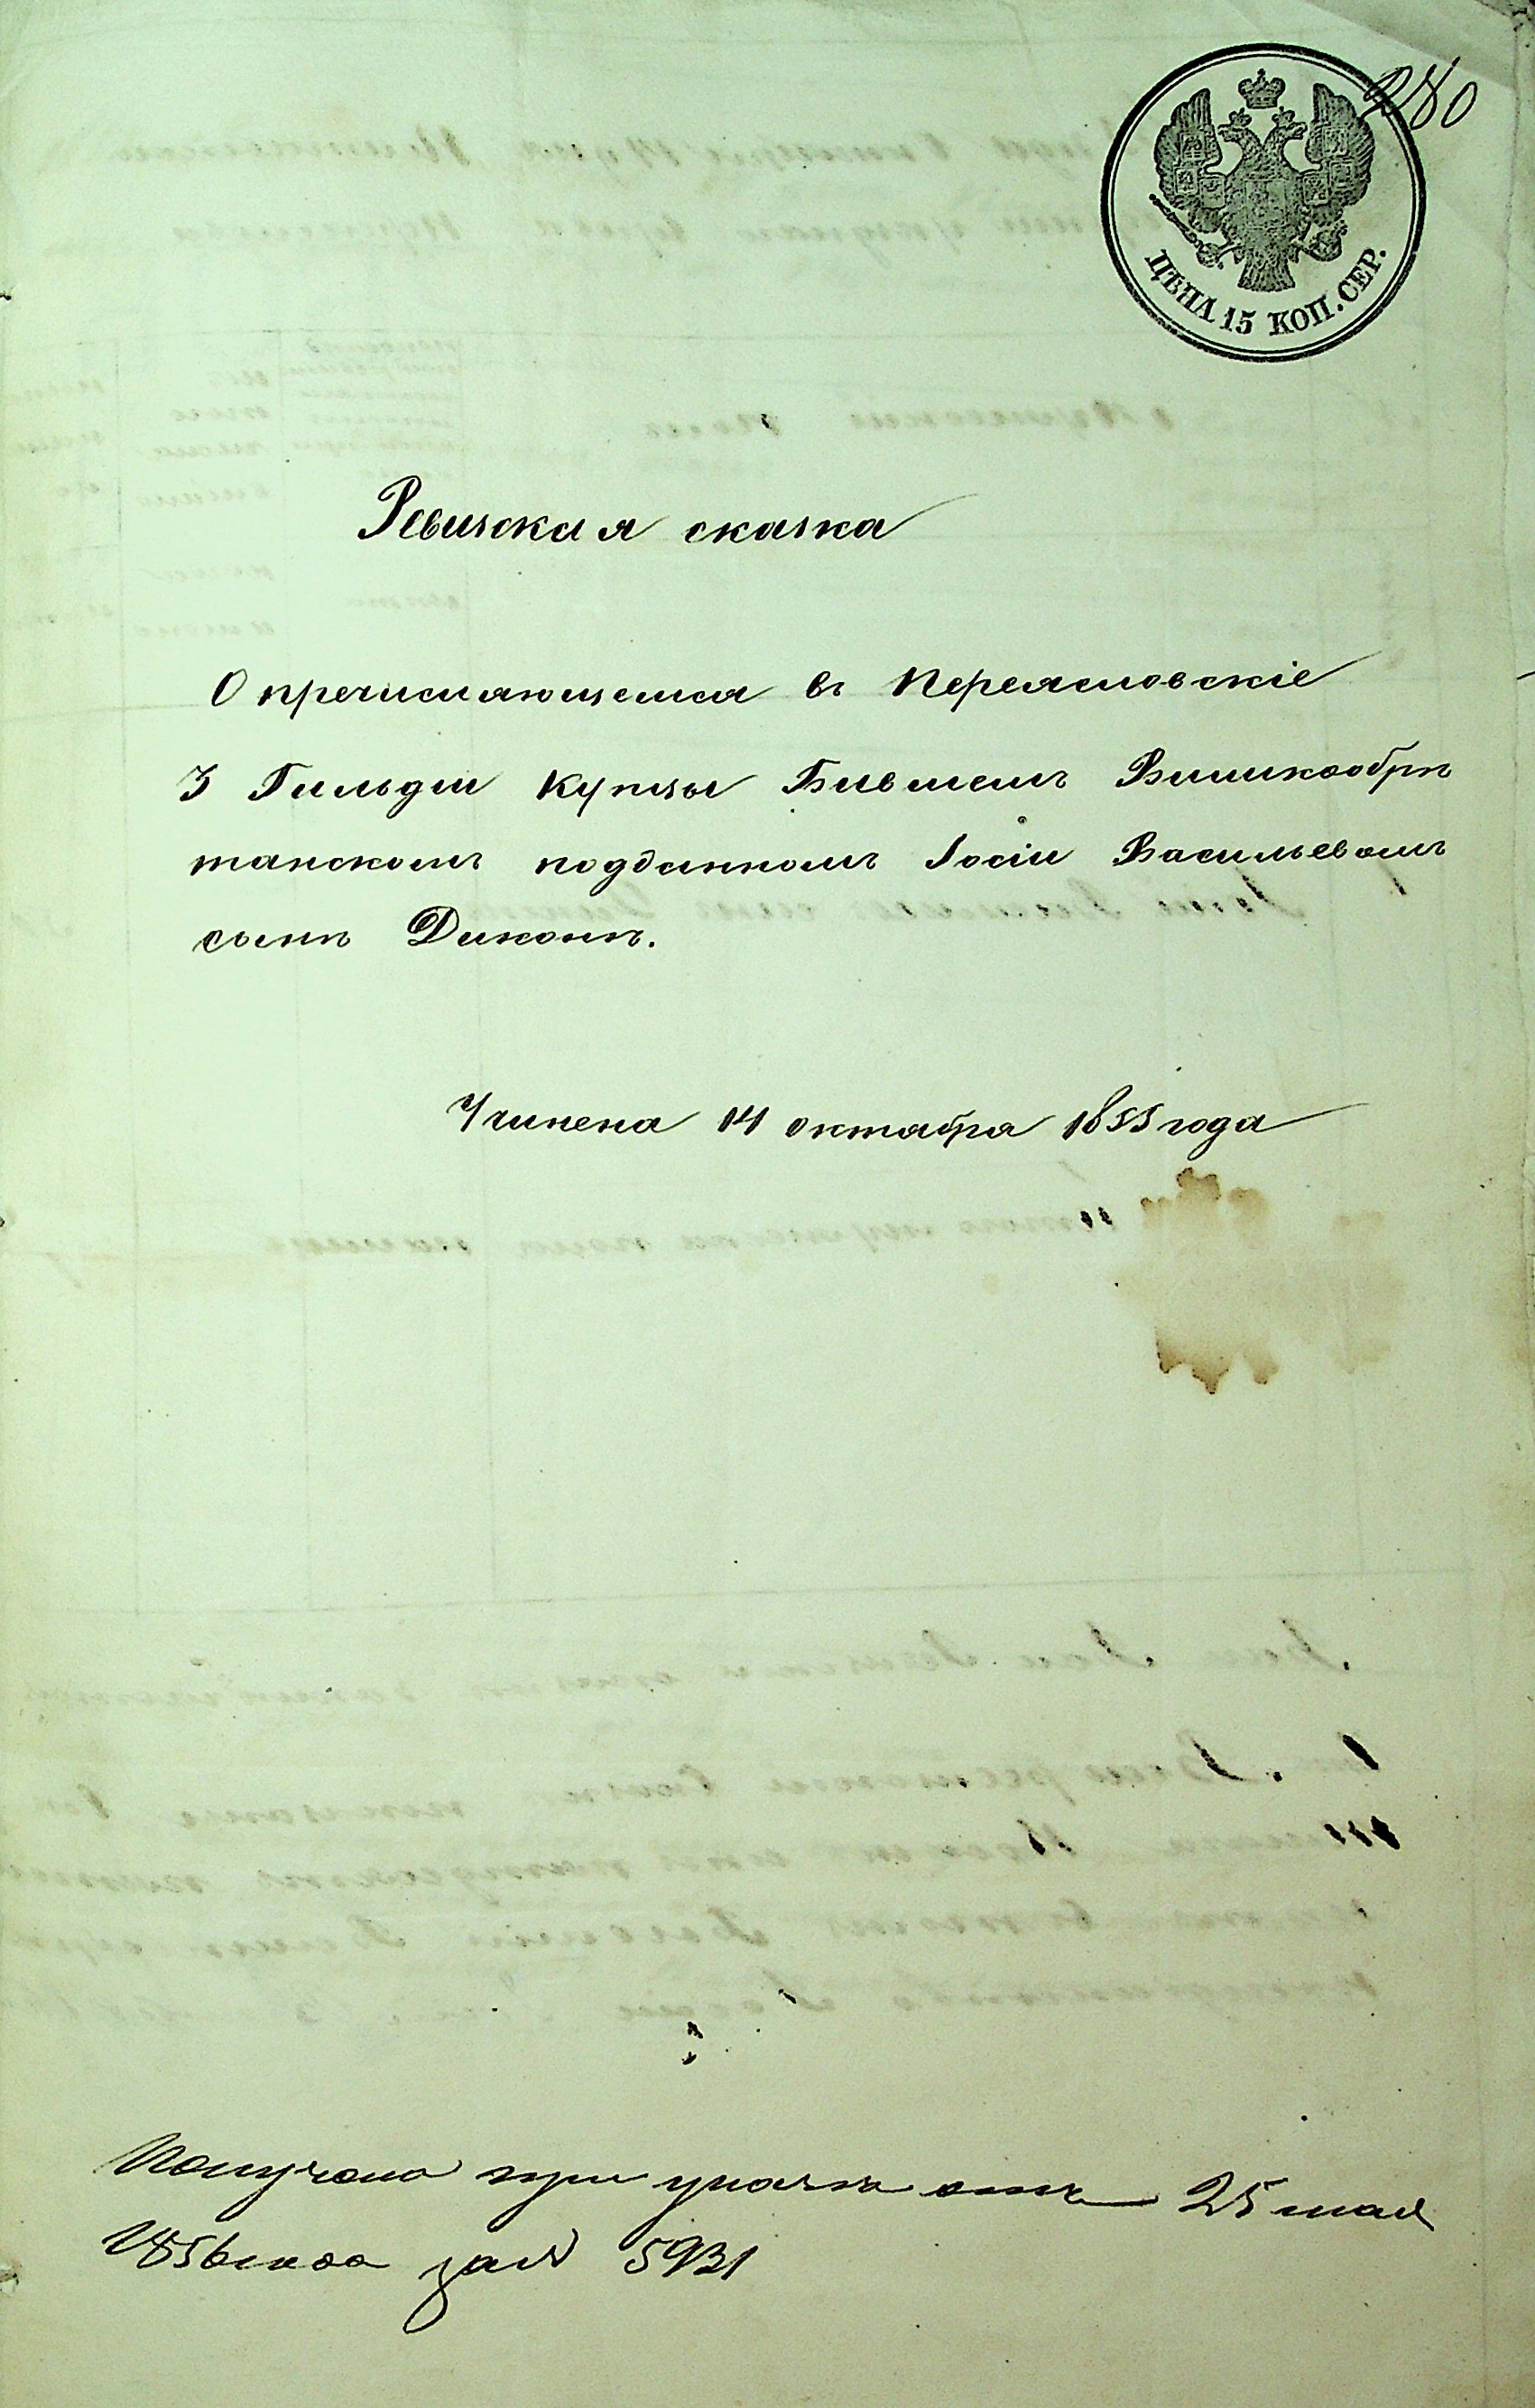 280
ЦѢНА 15 КОП. СЕР.
Ревизская сказка
О пречисляющемся въ Переясловскіе
3 Гильдіи Купцы Бывшемъ Виликобри
танскомъ подданномъ Іосіи Васильевомъ
сынѣ Диконѣ.
Учинена 14 октября 1855 года
Получено при указѣ отъ 25 мая
1856 года за № 5931